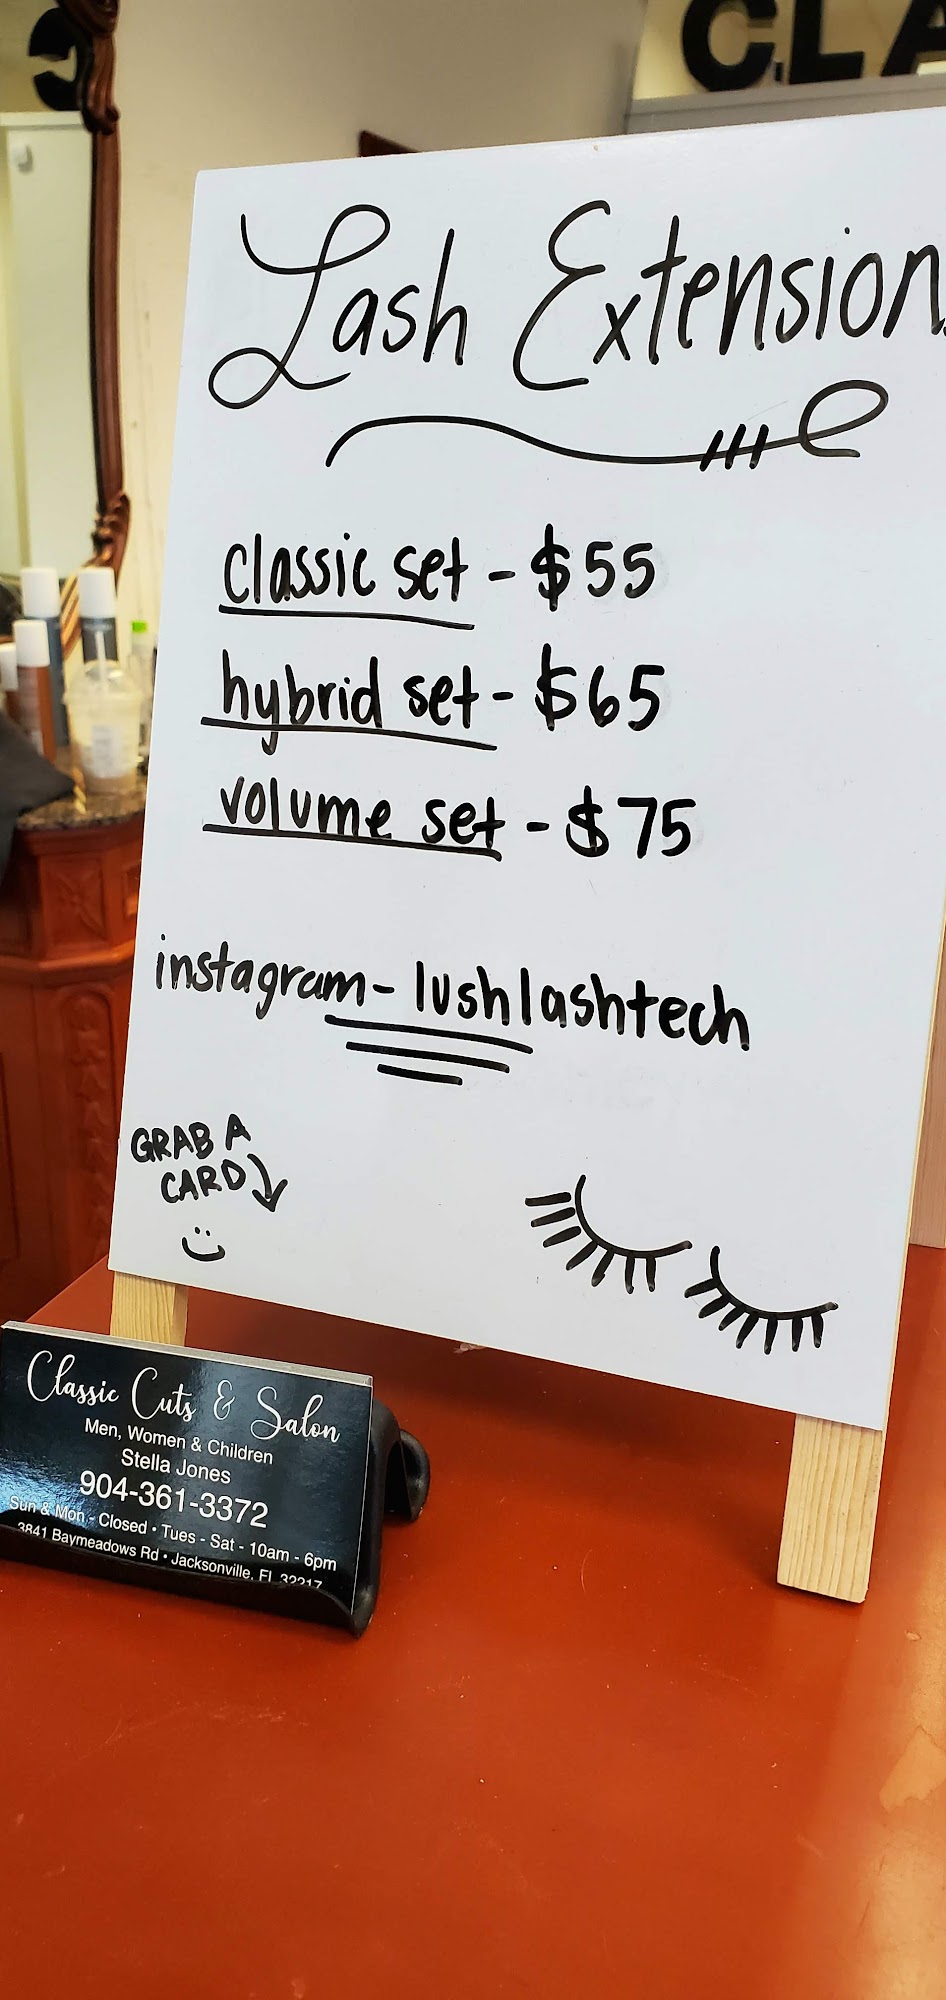 CLA
Lash Extensions
classic set - $55
hybrid set - $65
volume set - $75
instagram - lushlashtech
GRAB A
CARD
Classic Cuts & Salon
Men, Women & Children
Stella Jones
904-361-3372
Sun & Mon - Closed • Tues - Sat - 10am - 6pm
3841 Baymeadows Rd • Jacksonville, FL 32217